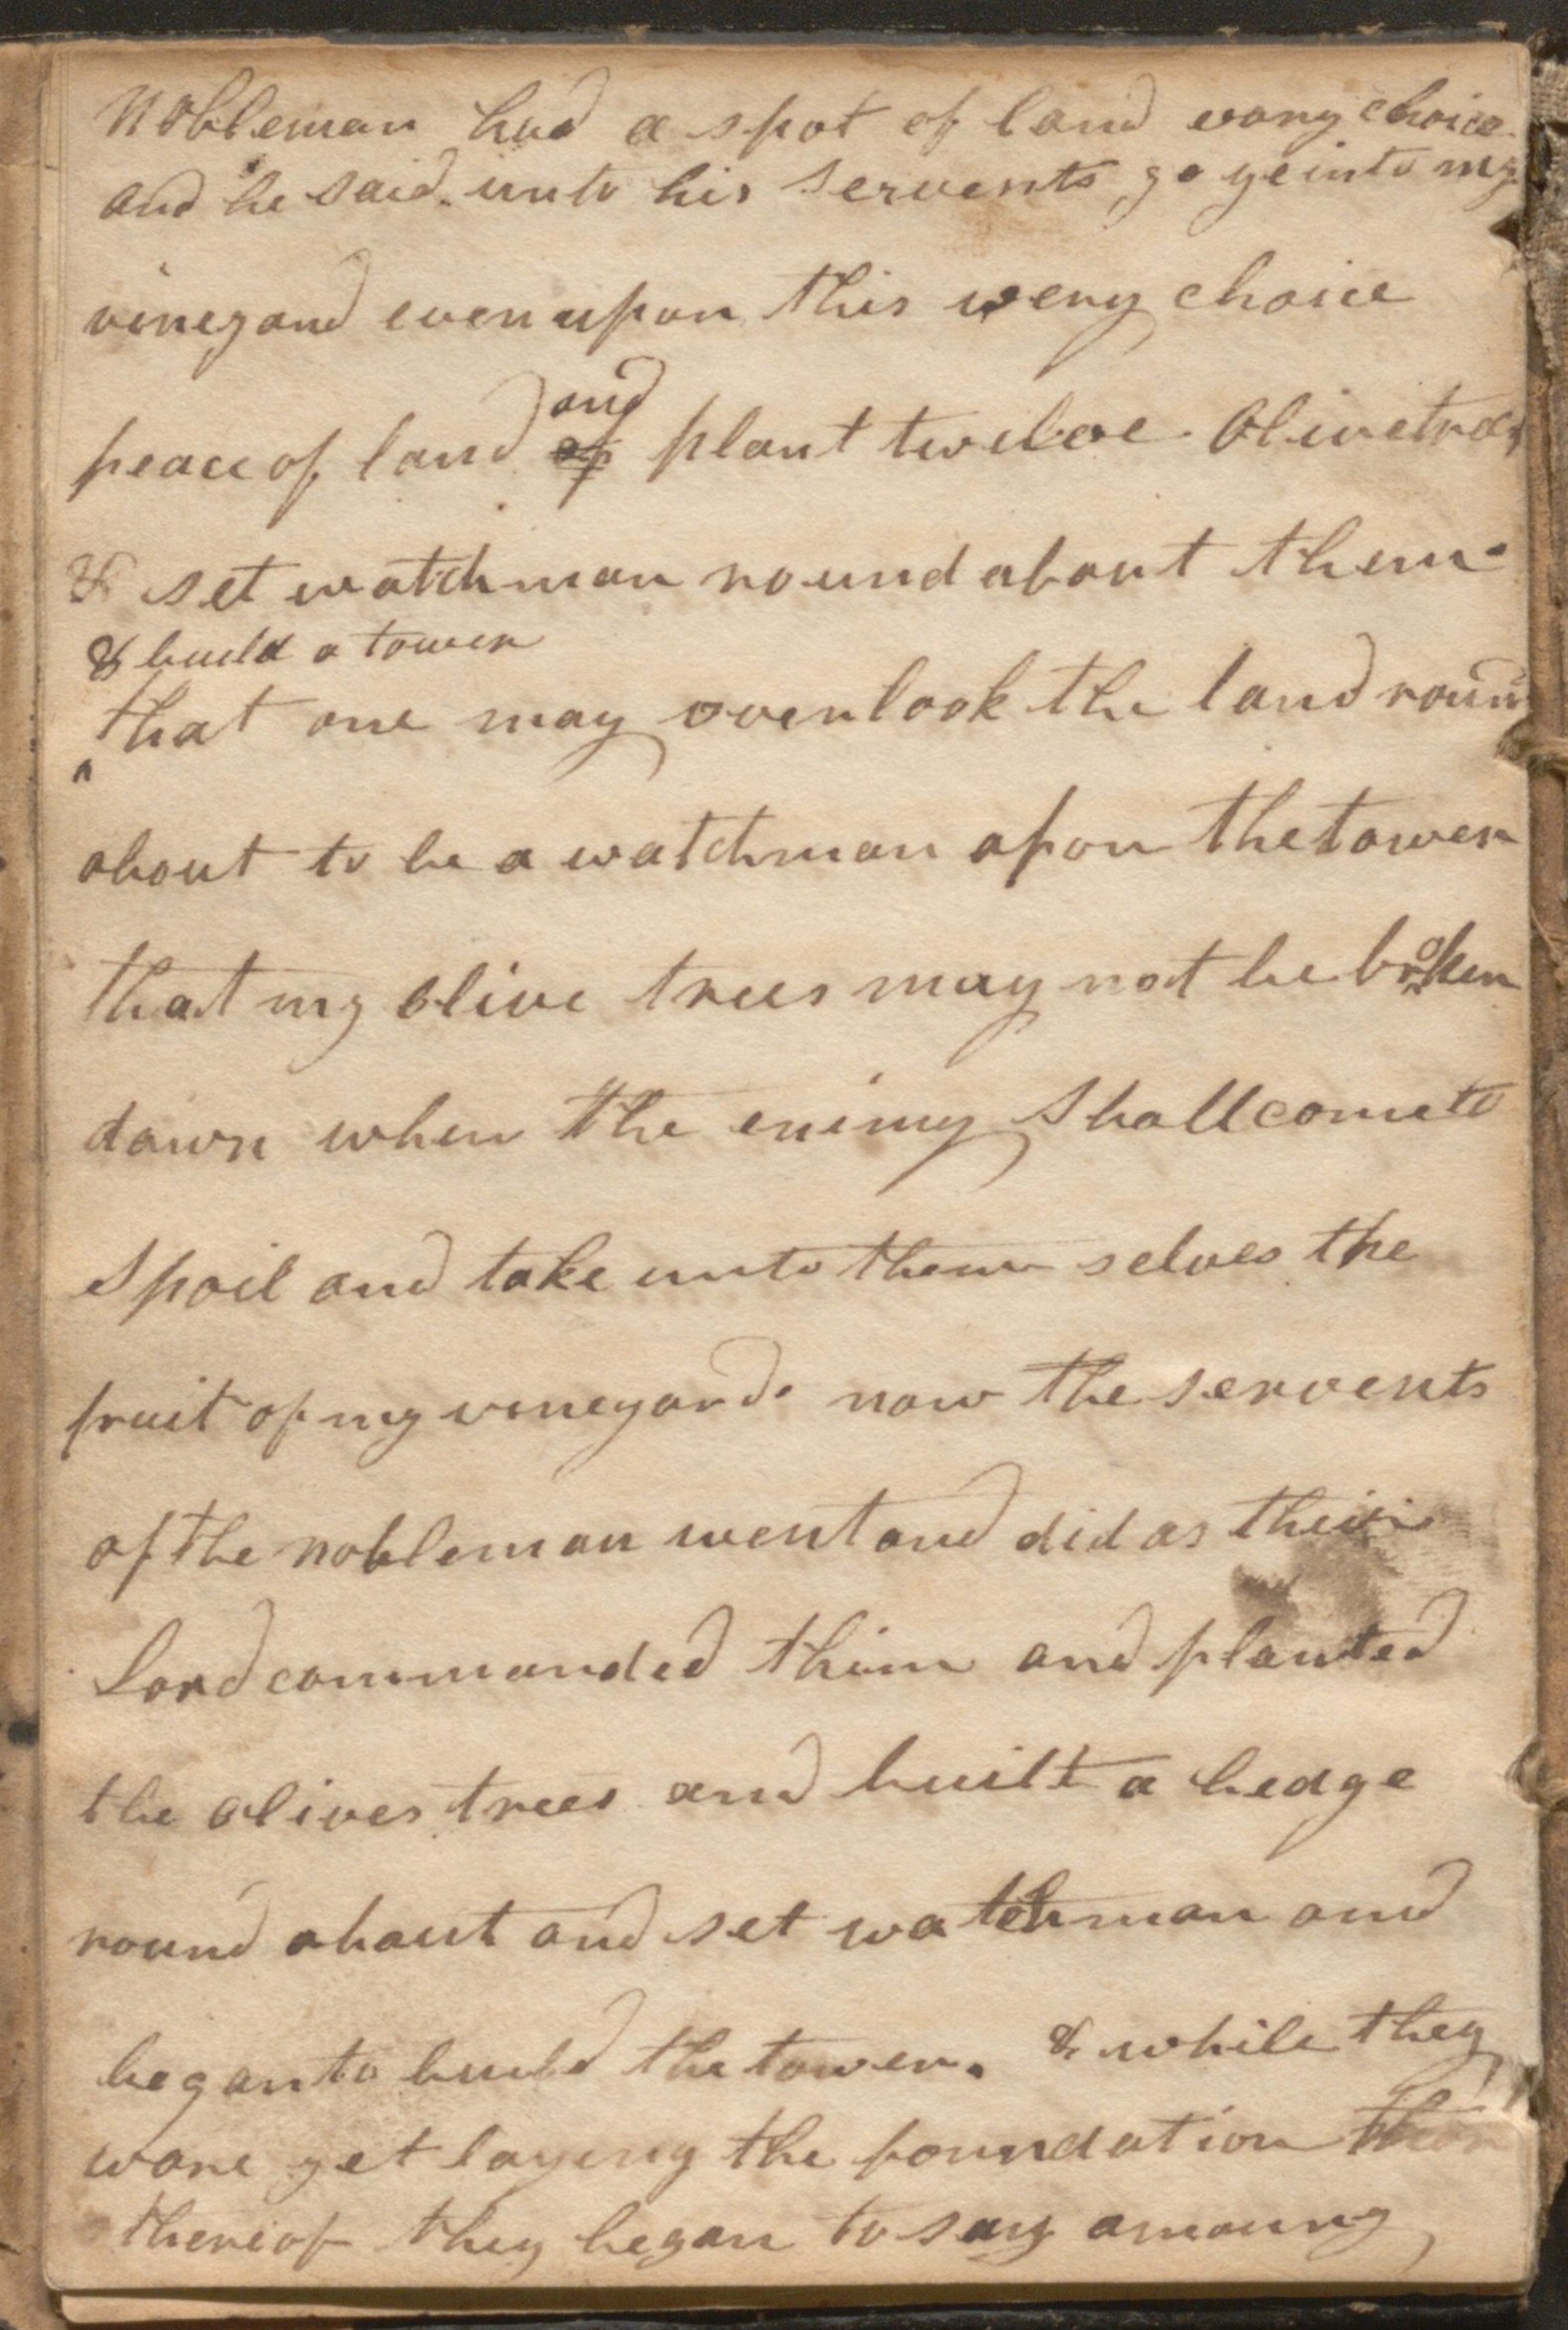 Nobleman had a spot of land vary choice
and he said unto his servents go ye into my
vineyard even upon this very choice
and
peace of land of plant twelve Olivetrees
& set watchman round about them
& build a tower
that one may overlook the land round
about to be a watchman apon the tower
that my olive trees may not be broken
down when the enimy shall come to
spoil and take unto them selves the
fruit of my vineyard. now the servents
of the nobleman went and did as their
Lord commanded thim and planted
the olives trees and built a hedge
round about and set watchman and
began to build the tower. & while they
ware yet laying the foundation
thereof they began to say amoung